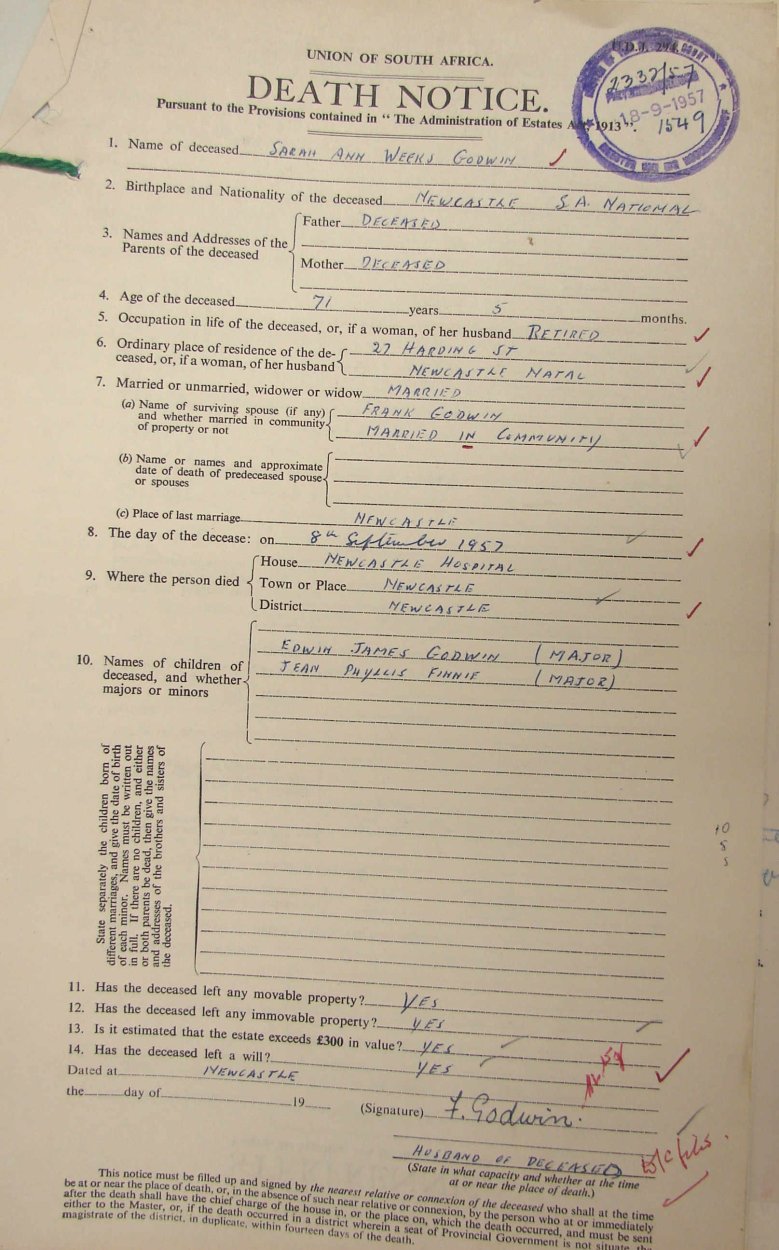 UNION OF SOUTH AFRICA.
U.D.J. 294.
DEATH NOTICE.
2332/57
18-9-1957
1549
Pursuant to the Provisions contained in "The Administration of Estates Act, 1913".
1. Name of deceased SARAH ANN WEEKS GODWIN
2. Birthplace and Nationality of the deceased NEWCASTLE S.A. NATIONAL
3. Names and Addresses of the Parents of the deceased
Father DECEASED
Mother DECEASED
4. Age of the deceased 71 years 5 months.
5. Occupation in life of the deceased, or, if a woman, of her husband RETIRED
6. Ordinary place of residence of the de-
ceased, or, if a woman, of her husband
27 HARDING ST
NEWCASTLE NATAL
7. Married or unmarried, widower or widow MARRIED
(a) Name of surviving spouse (if any)
and whether married in community
of property or not
FRANK GODWIN
MARRIED IN COMMUNITY
(b) Name or names and approximate
date of death of predeceased spouse
or spouses
(c) Place of last marriage NEWCASTLE
8. The day of the decease: on 8th September 1957
9. Where the person died
House NEWCASTLE HOSPITAL
Town or Place NEWCASTLE
District NEWCASTLE
10. Names of children of
deceased, and whether
majors or minors
EDWIN JAMES GODWIN (MAJOR)
JEAN PHYLLIS FINNIE (MAJOR)
State separately the children born of
different marriages, and give the date of birth
of each minor. Names must be written out
in full. If there are no children, and either
or both parents be dead, then give the names
and addresses of the brothers and sisters of
the deceased.
11. Has the deceased left any movable property? YES
12. Has the deceased left any immovable property? YES
13. Is it estimated that the estate exceeds £300 in value? YES
14. Has the deceased left a will? YES
Dated at NEWCASTLE
the day of 19
(Signature) F. Godwin.
HUSBAND OF DECEASED
(State in what capacity and whether at the time
at or near the place of death.)
This notice must be filled up and signed by the nearest relative or connexion of the deceased who shall at the time
be at or near the place of death, or, in the absence of such near relative or connexion, by the person who at or immediately
after the death shall have the chief charge of the house in, or the place on, which the death occurred, and must be sent
either to the Master, or, if the death occurred in a district wherein a seat of Provincial Government is not situate, the
magistrate of the district, in duplicate, within fourteen days of the death.